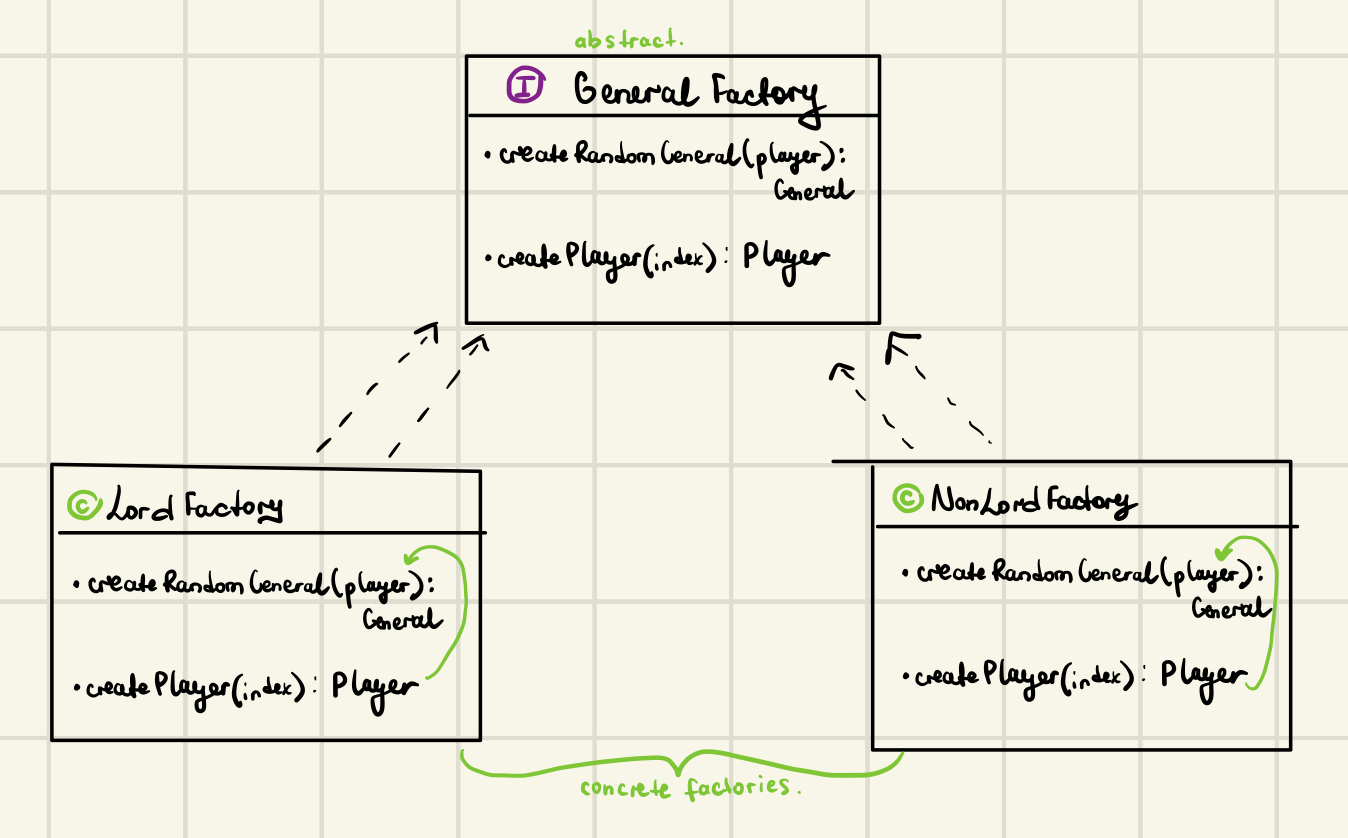 abstract.
I General Factory
• createRandomGeneral(player):
General
• createPlayer(index): Player
C Lord Factory
• createRandomGeneral(player):
General
• createPlayer(index): Player
C NonLordFactory
• createRandomGeneral(player):
General
• createPlayer(index): Player
concrete factories.